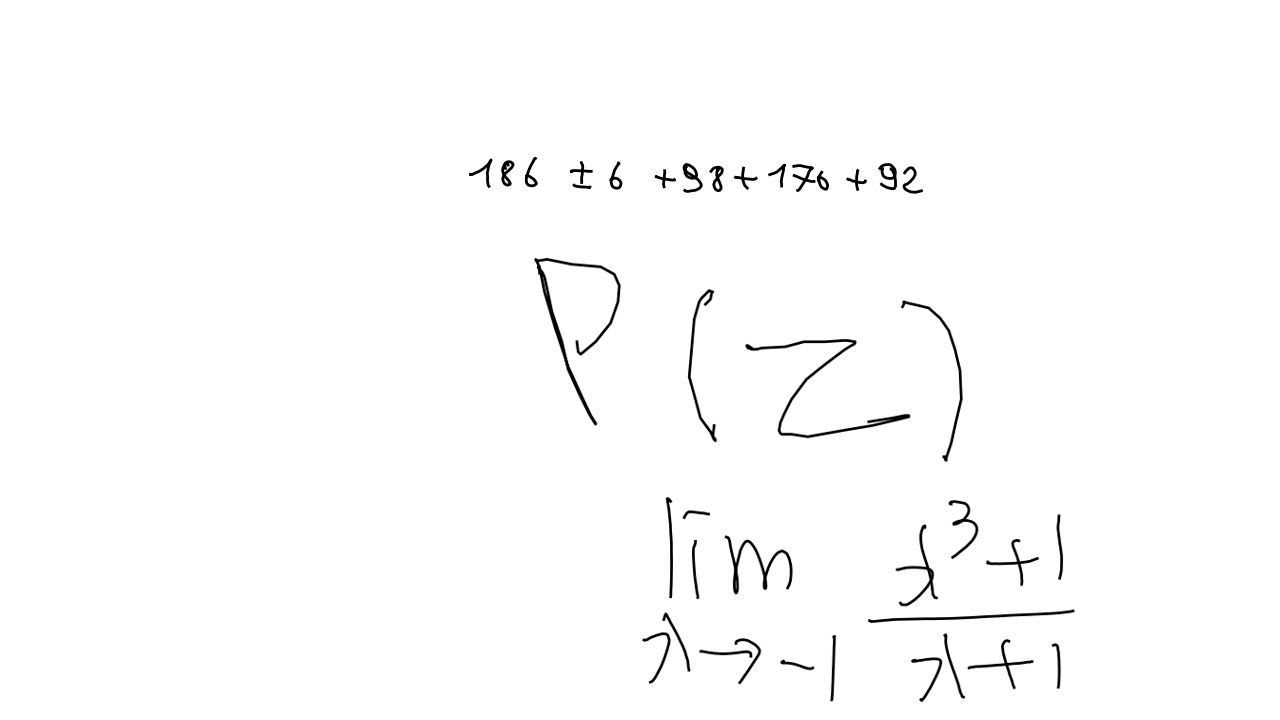 186 ± 6 + 98 + 176 + 92
P(z)
lim x→-1 (x^3+1)/(x+1)